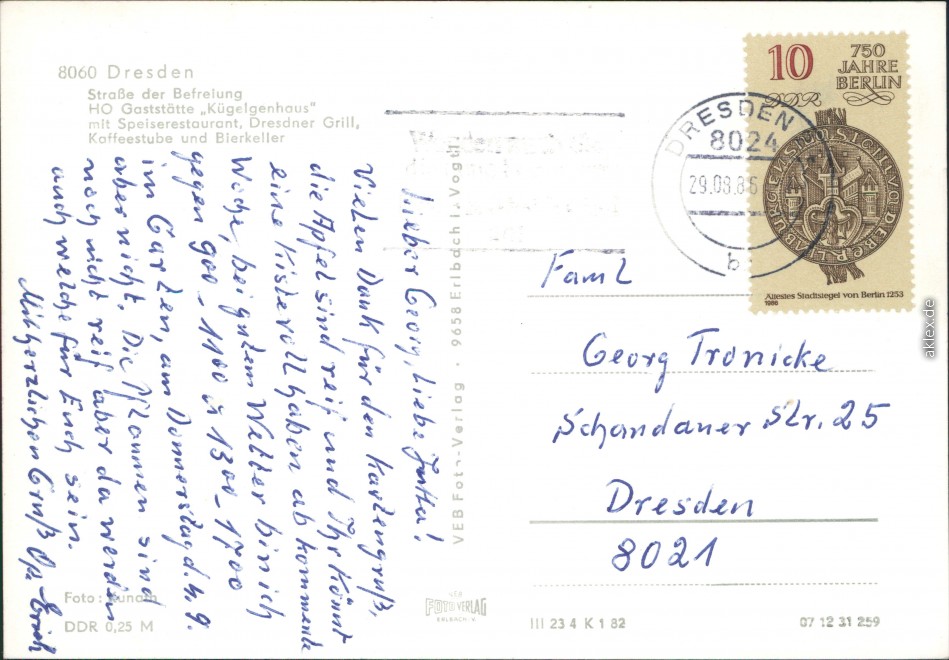 8060 Dresden
Straße der Befreiung
HO Gaststätte „Kügelgenhaus"
mit Speiserestaurant, Dresdner Grill,
Kaffeestube und Bierkeller
Lieber Georg, liebe Jutta!
Vielen Dank für den Kartengruß,
die Äpfel sind reif und Ihr könnt
eine Kiste voll haben ab kommende
Woche, bei gutem Wetter bin ich
gegen 900 – 1100 u 1300 – 1700
im Garten, am Donnerstag d. 4. 9.
aber nicht. Die Pflaumen sind
noch nicht reif aber da werden
auch welche für Euch sein.
Mit herzlichen Gruß Erich
Foto:
DDR 0,25 M
VEB Foto-Verlag · 9658 Erlbach i. Vogtl.
VEB
FOTO VERLAG
ERLBACH V.
DRESDEN
8024
29.08.86
b
10
750
JAHRE
BERLIN
DDR
Ältestes Stadtsiegel von Berlin 1253
1986
Faml
Georg Tronicke
Schandauer Str. 25
Dresden
8021
III 23 4 K 1 82
07 12 31 259
aklex.de